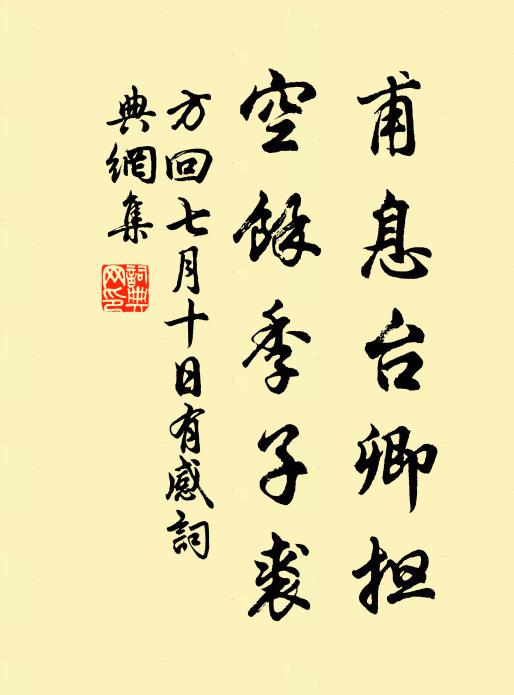 甫息台卿担
空餘季子裘
方回七月十日有感詞
典網集
詞典網印